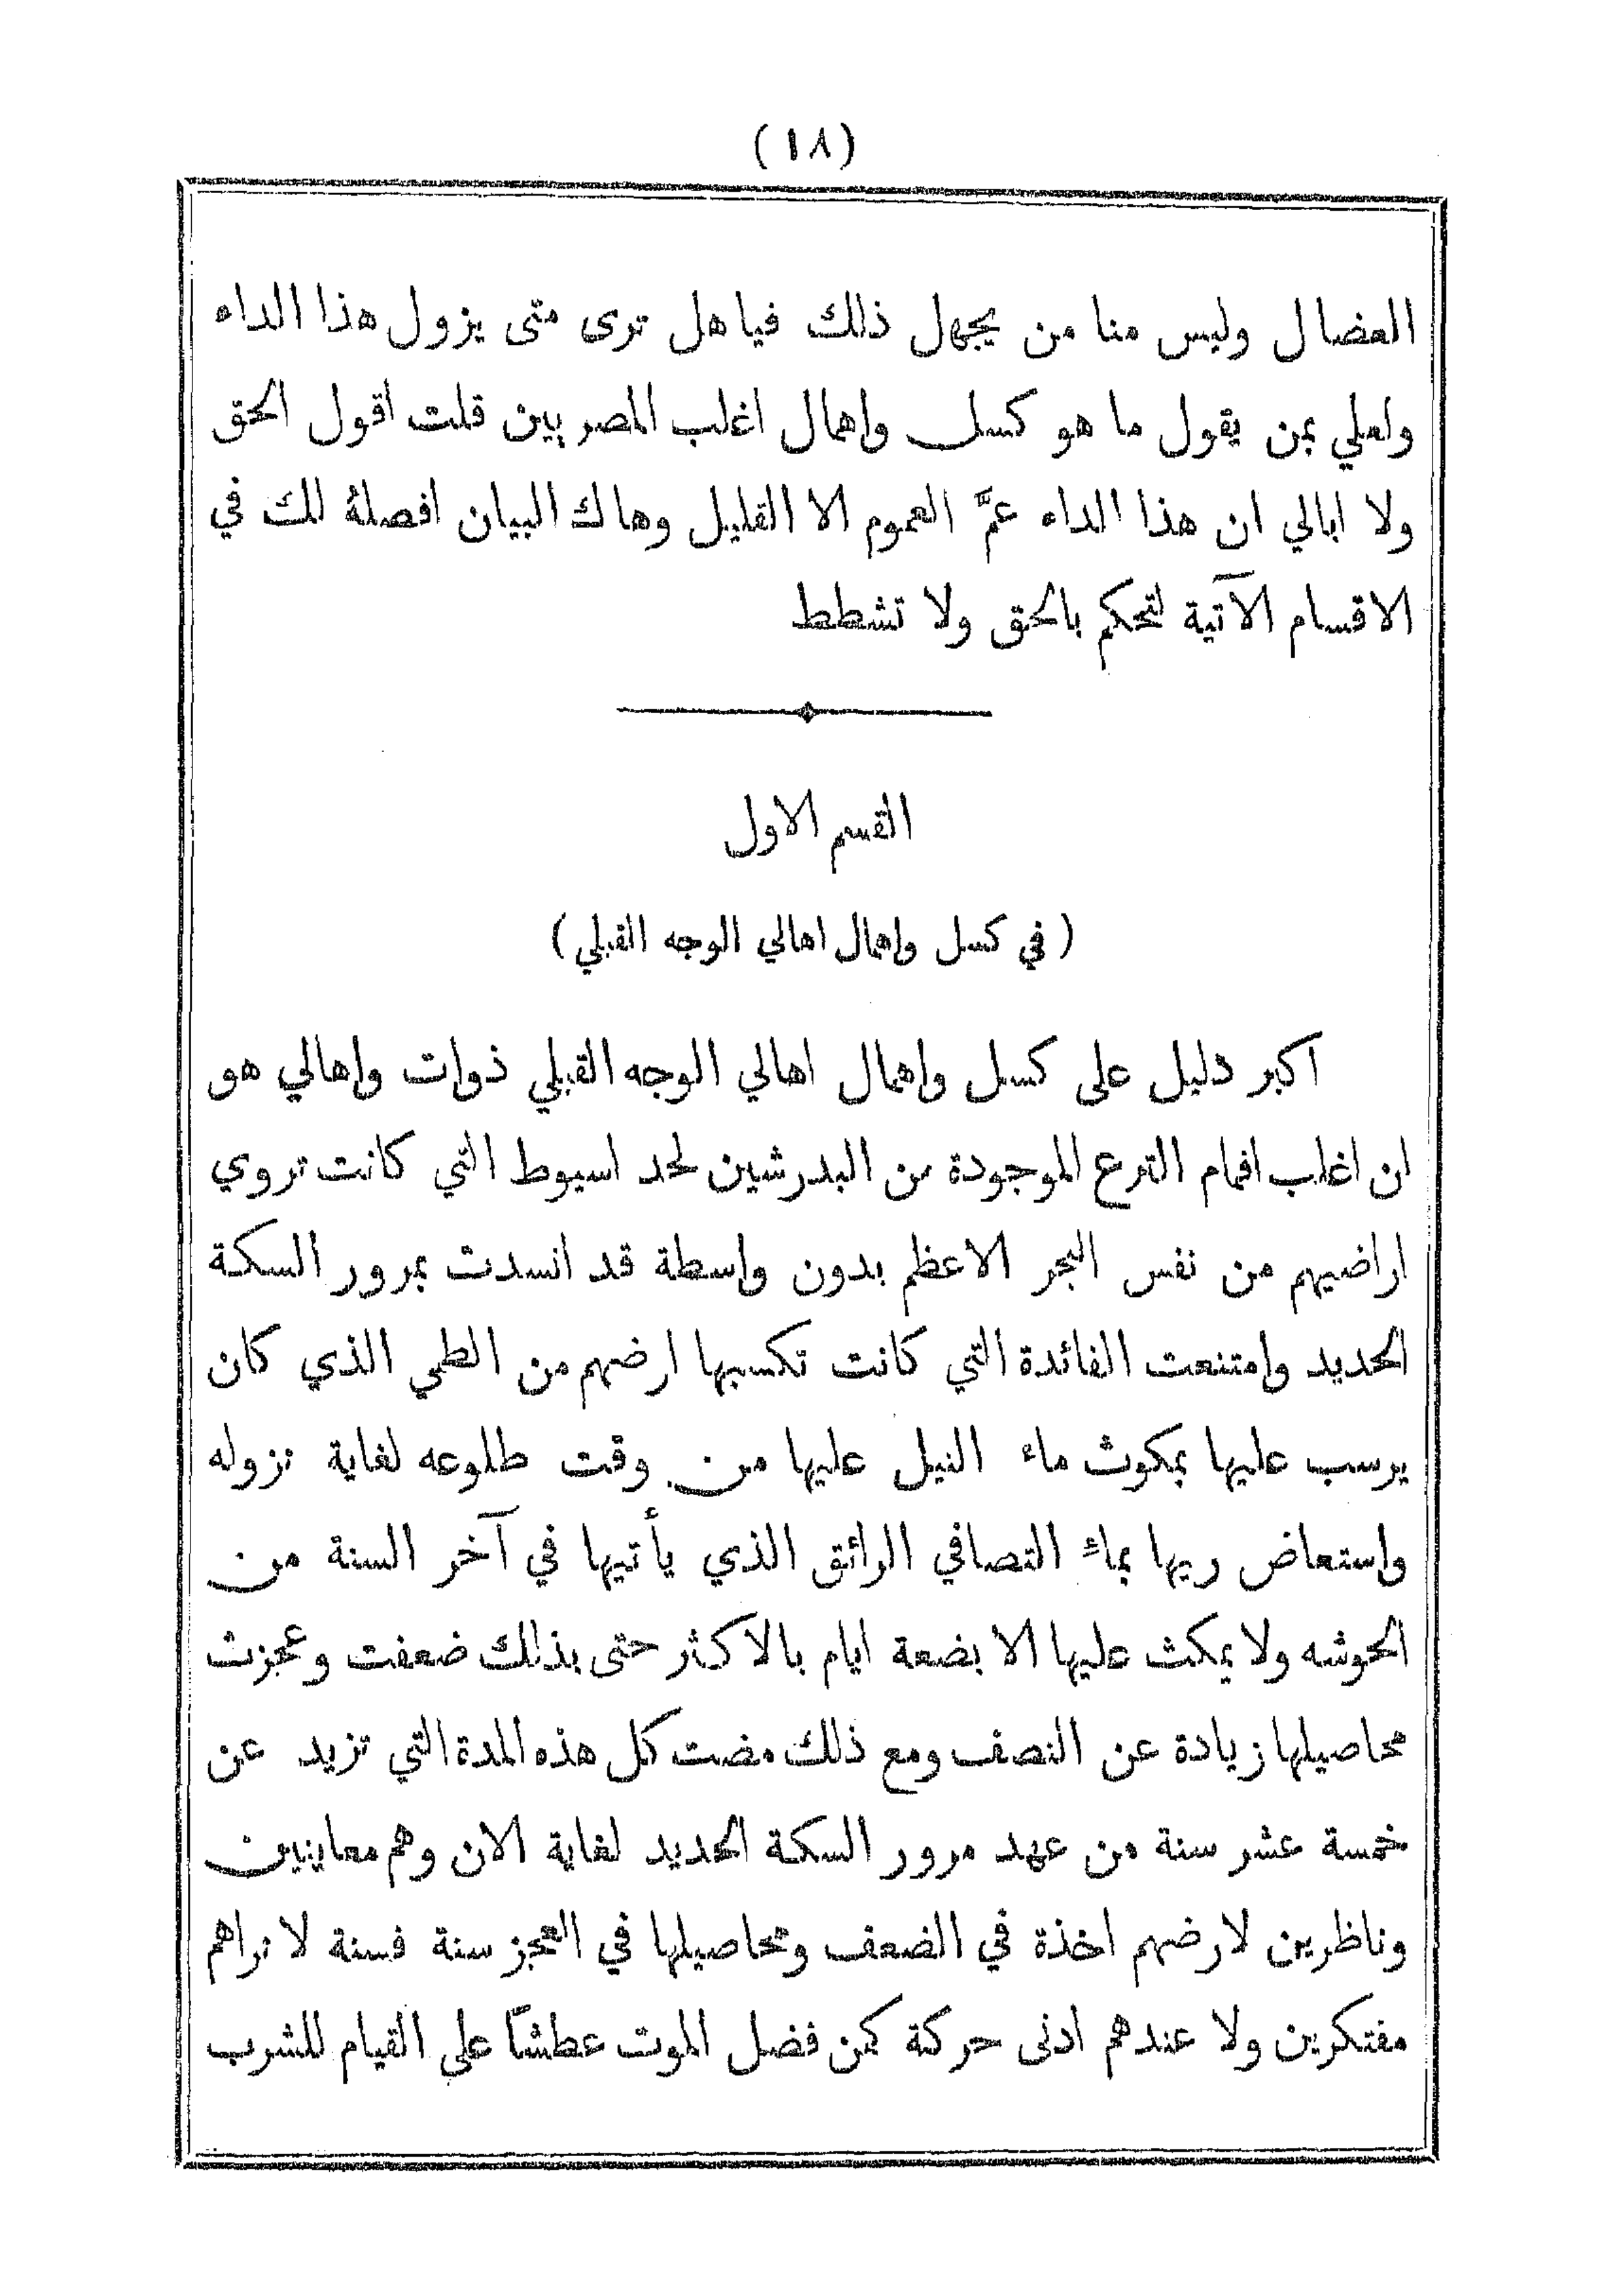 (١٨)
العضال وليس منا من يجهل ذلك فيا هل ترى متى يزول هذا الداء
ولعلي بمن يقول ما هو كسل واهمال اغلب المصريين قلت اقول الحق
ولا ابالي ان هذا الداء عمَّ العموم الا القليل وهاك البيان افصلهُ لك في
الاقسام الآتية لتحكم بالحق ولا تشطط
القسم الاول
(في كسل واهمال اهالي الوجه القبلي)
اكبر دليل على كسل واهمال اهالي الوجه القبلي ذوات واهالي هو
ان اغلب افمام الترع الموجودة من البدرشين لحد اسيوط التي كانت تروي
اراضيهم من نفس البحر الاعظم بدون واسطة قد انسدت بمرور السكة
الحديد وامتنعت الفائدة التي كانت تكسبها ارضهم من الطمي الذي كان
يرسب عليها بمكوث ماء النيل عليها من وقت طلوعه لغاية نزوله
واستعاض ريها بماء التصافي الرائق الذي يأتيها في آخر السنة من
الحوشه ولا يمكث عليها الا بضعة ايام بالاكثر حتى بذلك ضعفت وعجزت
محاصيلها زيادة عن النصف ومع ذلك مضت كل هذه المدة التي تزيد عن
خمسة عشر سنة من عهد مرور السكة الحديد لغاية الان وهم معاينين
وناظرين لارضهم اخذة في الضعف ومحاصيلها في العجز سنة فسنة لا نراهم
مفتكرين ولا عندهم ادنى حركة كمن فضل الموت عطشاً على القيام للشرب